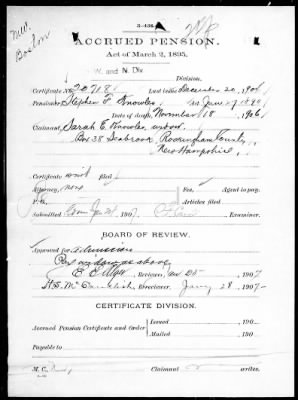 NW.
Boston
3-436.
ACCRUED PENSION.
Act of March 2, 1895.
W. and N. Div
Division.
Certificate No. 20718 Last to December 20, 1906
Pensioner Stephen F. Knowles
Date of death, November 18, 1906,
Claimant, Sarah E. Knowles, widow.
Box 38 Seabrook, Rockingham County,
New Hampshire,
Certificate filed
Attorney, none Fee, Agent to pay.
P. O. Articles filed
Submitted Jan 24, 1907, Examiner.
BOARD OF REVIEW.
Approved for Admission
Pay widow as above
Reviewer, 25, 1907
Rereviewer, Jany 28, 1907
CERTIFICATE DIVISION.
Accrued Pension Certificate and Order
Issued , 190
Mailed , 190
Payable to
M. C. Claimant writes.